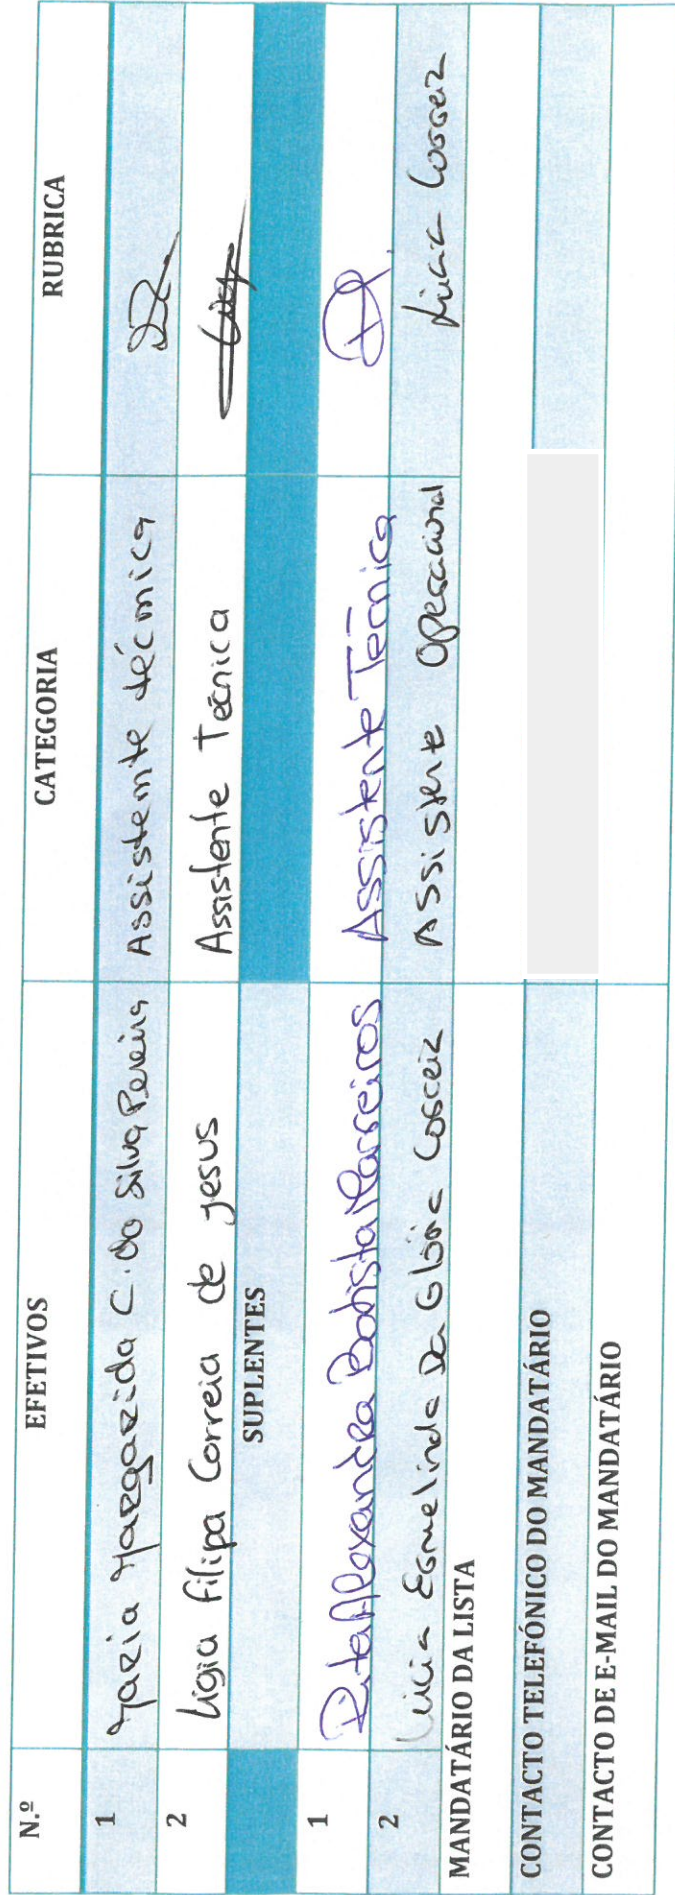 N.º EFETIVOS CATEGORIA RUBRICA
1 Maria Margarida C. da Silva Pereira Assistente técnica
2 Lígia Filipa Correia de Jesus Assistente Técnica
SUPLENTES
1 Rita Alexandra Batista Marreiros Assistente Técnica
2 Lúcia Esmelinda Da Glória Correia Assistente Operacional Lúcia Correia
MANDATÁRIO DA LISTA
CONTACTO TELEFÓNICO DO MANDATÁRIO
CONTACTO DE E-MAIL DO MANDATÁRIO